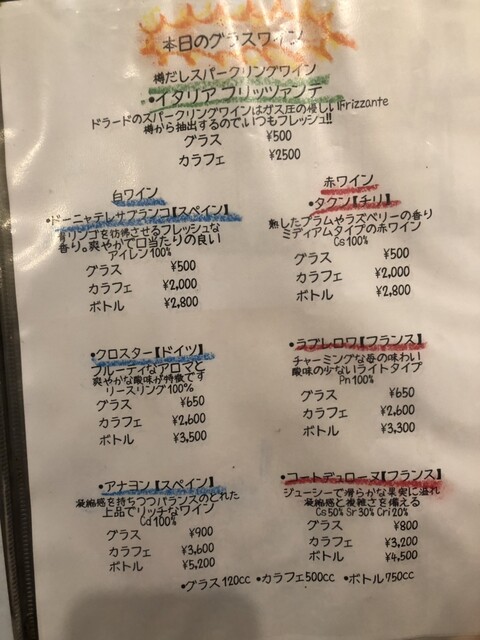 本日のグラスワイン
樽だしスパークリングワイン
•イタリア フリッツァンテ
ドラードのスパークリングワインはガス圧の優しいFrizzante
樽から抽出するので、いつもフレッシュ!!
グラス ¥500
カラフェ ¥2500
白ワイン
•ドーニャテレサブランコ【スペイン】
青リンゴを彷彿させるフレッシュな
香り。爽やかで口当たりの良い
アイレン100%
グラス ¥500
カラフェ ¥2,000
ボトル ¥2,800
•クロスター【ドイツ】
フルーティなアロマと
爽やかな酸味が特徴です
リースリング100%
グラス ¥650
カラフェ ¥2,600
ボトル ¥3,500
•アナヨン【スペイン】
凝縮感を持ちつつバランスのとれた
上品でリッチなワイン
Cd100%
グラス ¥900
カラフェ ¥3,600
ボトル ¥5,200
赤ワイン
•タクン【チリ】
熟したプラムやラズベリーの香り
ミディアムタイプの赤ワイン
Cs100%
グラス ¥500
カラフェ ¥2,000
ボトル ¥2,800
•ラブレロワ【フランス】
チャーミングな苺の味わい
酸味の少ないライトタイプ
Pn100%
グラス ¥650
カラフェ ¥2,600
ボトル ¥3,300
•コートデュローヌ【フランス】
ジューシーで滑らかな果実に溢れ
凝縮感と複雑さを備える
Cs50% Sr30% Cri20%
グラス ¥800
カラフェ ¥3,200
ボトル ¥4,500
•グラス120cc •カラフェ500cc •ボトル750cc